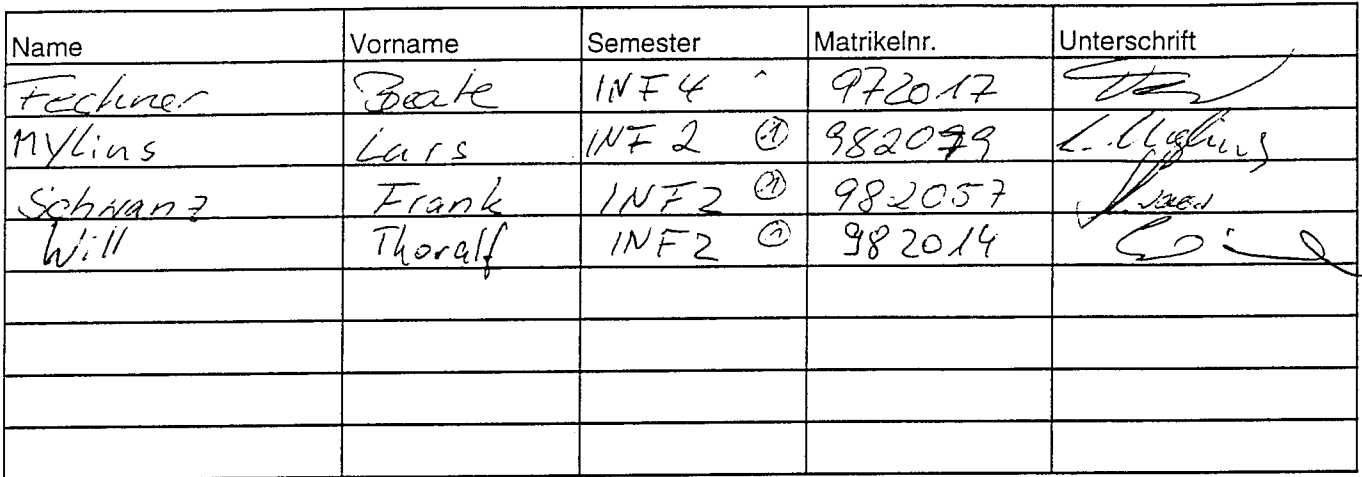 Name Vorname Semester Matrikelnr. Unterschrift
Fechner Beate INF 4 972017
Mylins Lars INF 2 ① 982079
Schwanz Frank INF2 ① 982057
Will Thoralf INF2 ① 982014